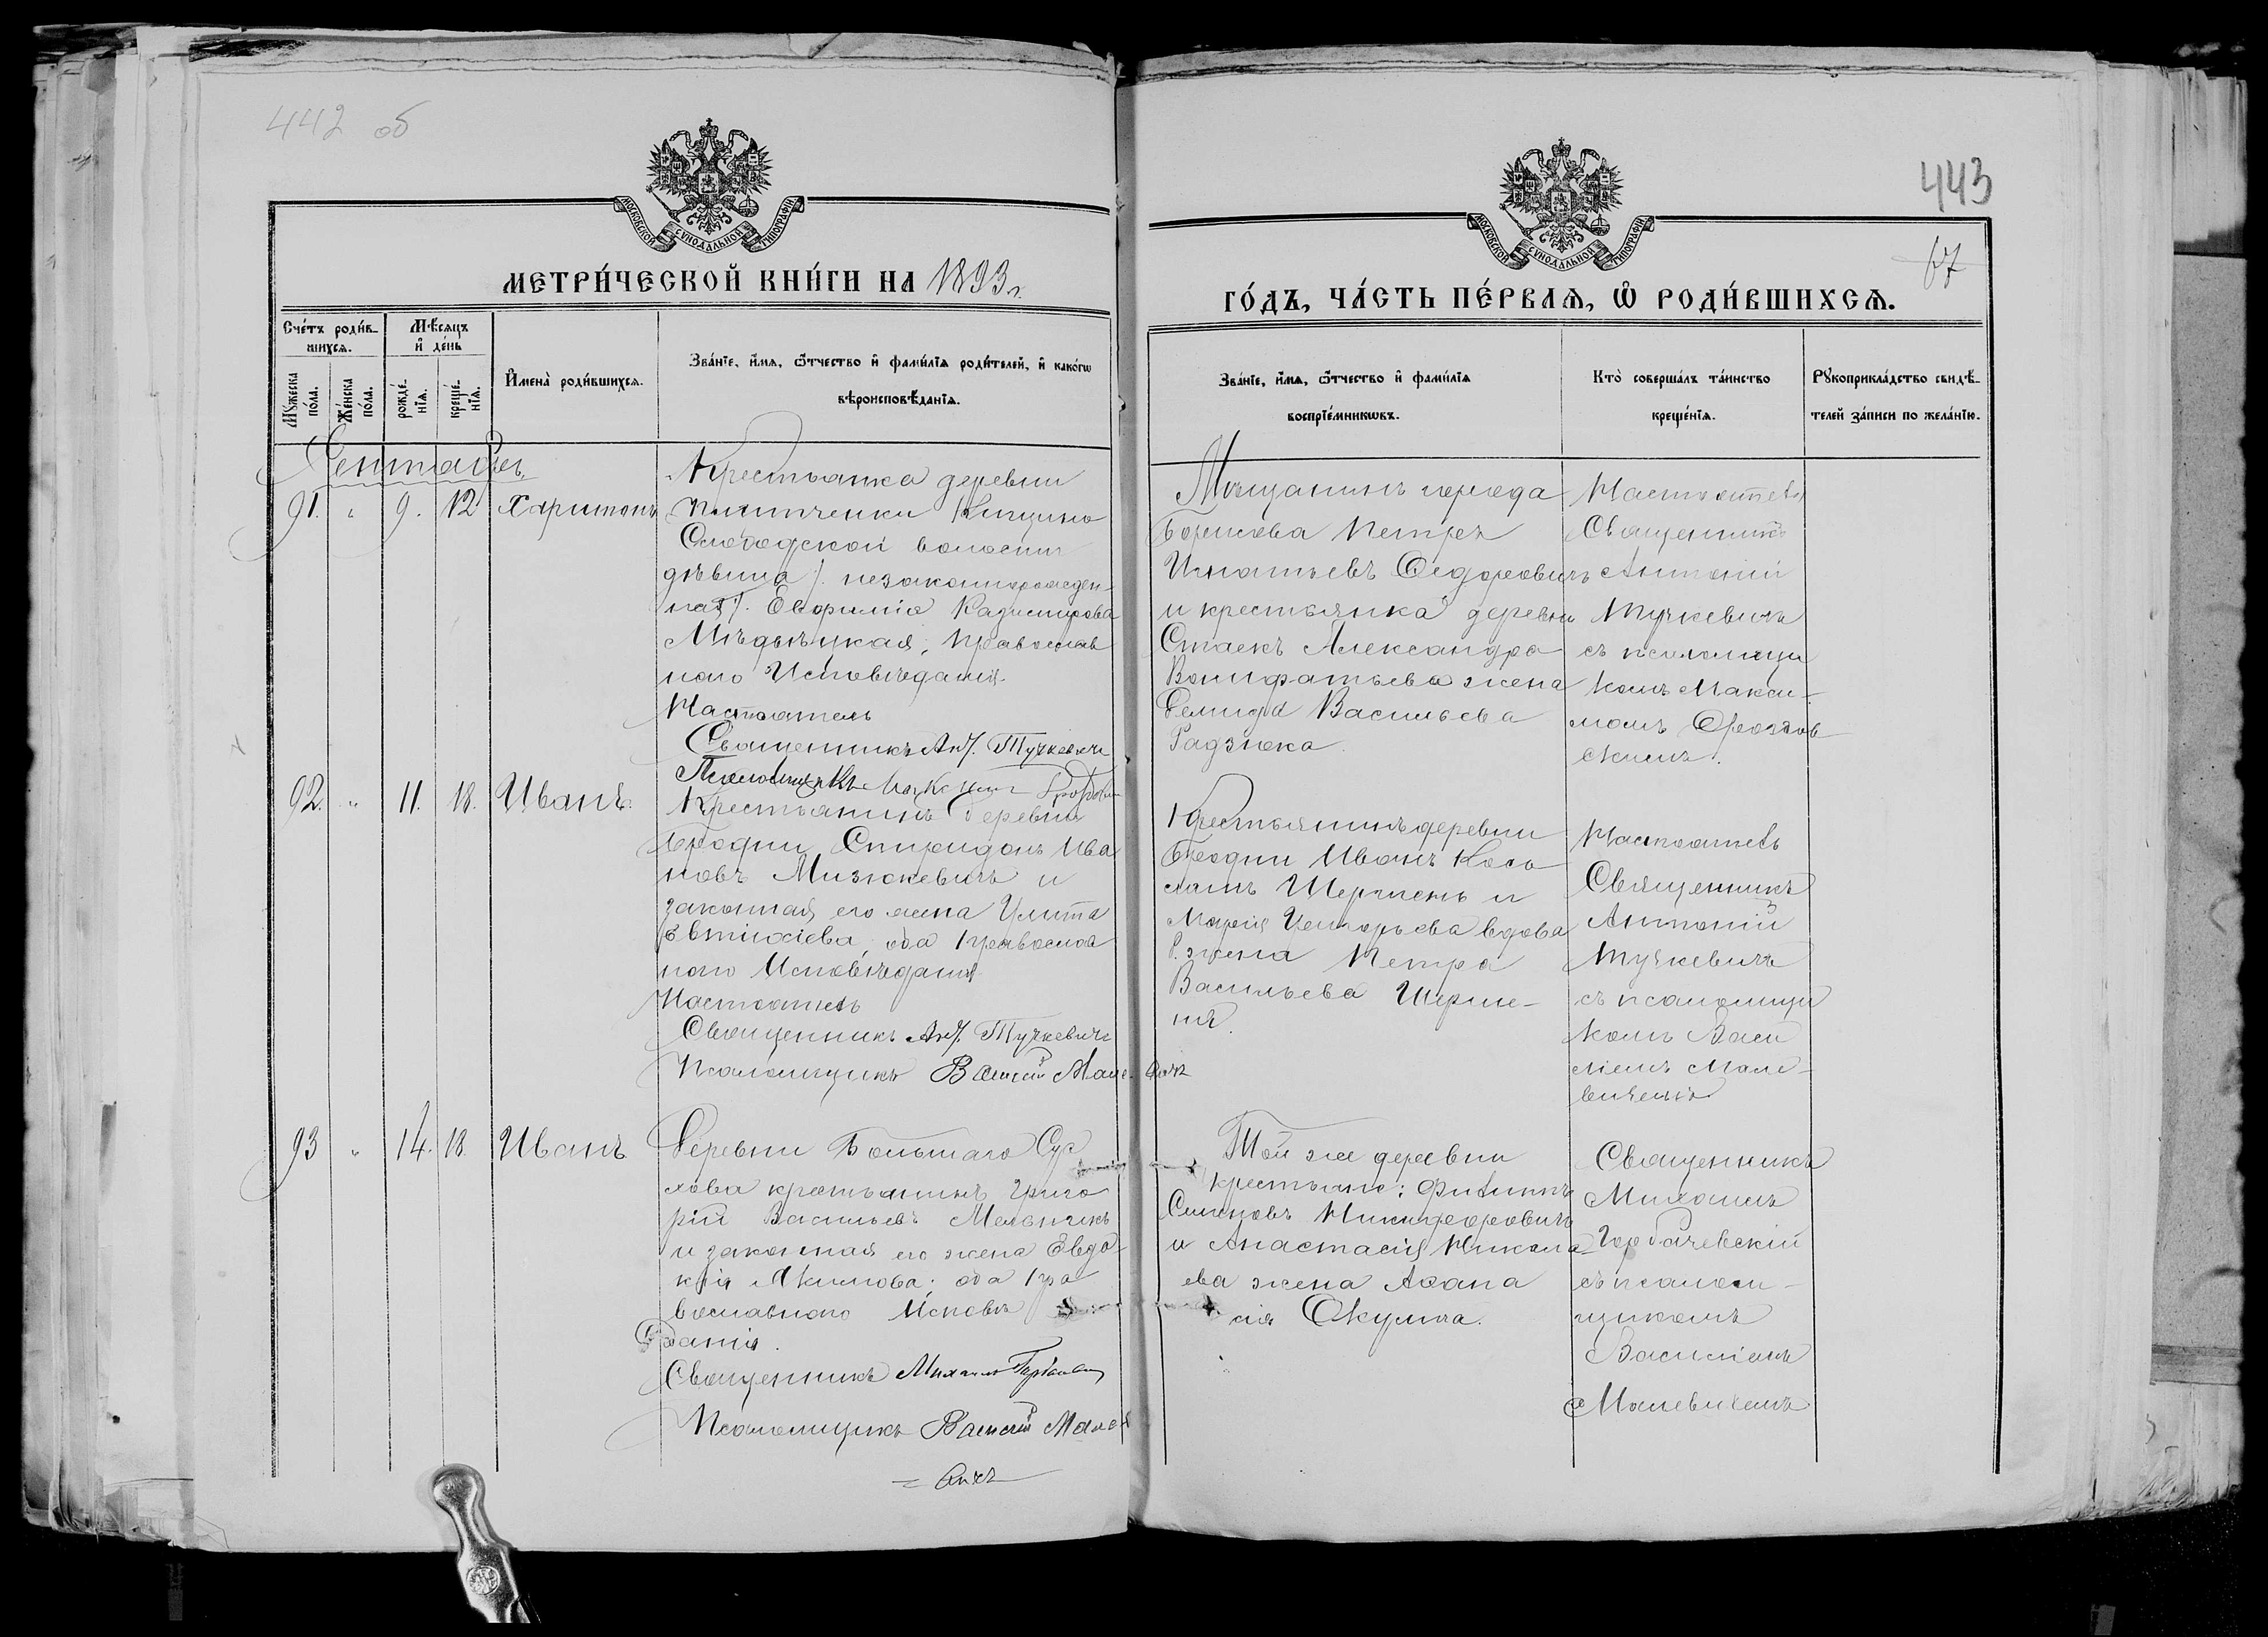 442 об
МОСКОВСКОЙ СУНОДАЛЬНОЙ ТИПОГРАФІИ
МЕТРИ́ЧЕСКОЙ КНИ́ГИ НА 1893 г.
Сче́тъ роди́вшихся.
Мѣ́сяцъ и҆ де́нь
Мꙋ́жеска по́ла.
Же́нска по́ла.
рожде́нїѧ.
креще́нїѧ.
И҆мена̀ роди́вшихсѧ.
Зва́нїе, и҆́мѧ, ѻ҆́тчество и҆ фами́лїѧ роди́телей, и҆ како́гѡ
вѣроисповѣ́данїѧ.
Сентябрь
91. " 9. 12 Харитонъ
Крестьянка деревни
Слободской волости
дѣвица /незаконнорожден-
ная/. Евфимія Казимирова
Мѣдынцкая, православ
наго Исповѣданія.
Настоятель
Священникъ Ант. Тучкевичъ
Псаломщикъ Максимъ
92. " 11. 18. Иванъ.
Крестьянинъ деревни
Бродни Спиридонъ Ива
новъ Мизюкевичъ и
законная его жена Улита
Евтихіева, оба православ
наго Исповѣданія
Настоятель
Священникъ Ант. Тучкевичъ
Псаломщикъ Василій Мале-
вичъ
93 " 14. 18. Иванъ
Деревни Большаго Сут
хова крестьянинъ Григо
рій Васильевъ Мельникъ
и законная его жена Евдо
кія Якимова; оба пра
вославнаго Исповѣ
данія.
Священникъ Михаилъ Горбачев
Псаломщикъ Василій Малев
=вичъ
443
67
МОСКОВСКОЙ СУНОДАЛЬНОЙ ТИПОГРАФІИ
ГО́ДЪ, ЧА́СТЬ ПЕ́РВАѦ, Ѡ҆ РОДИ́ВШИХСѦ.
Зва́нїе, и҆́мѧ, ѻ҆́тчество и҆ фами́лїѧ
воспрїе́мникѡвъ.
Кто̀ соверша́лъ та́инство
креще́нїѧ.
Рꙋкоприкла́дство свидѣ́-
телей за́писи по жела́нїю.
Мѣщанинъ города
Борисова Петръ
Игнатьевъ Федоровичъ
и крестьянка деревни
Стаекъ Александра
Вонифатьева жена
Демида Васильева
Радзюка.
Настоятель
Священникъ
Антоній
Тучкевичъ
съ псаломщи
комъ Макси-
момъ
скимъ.
Крестьянинъ деревни
Бродни Иванъ Кось
мамъ Шерменъ и
Марія Григорьева вдова
жена Петра
Васильева Шерме-
ня.
Настоятель
Священникъ
Антоній
Тучкевичъ
съ псаломщи
комъ Васи
ліемъ Мале-
вичемъ
Той же деревни
крестьяне: Филиппъ
Симоновъ Никифоровичъ
и Анастасія Никола
ева жена Афана
сія Окулича.
Священникъ
Михаилъ
Горбачевскій
съ псалом-
щикомъ
Василіемъ
Малевичемъ